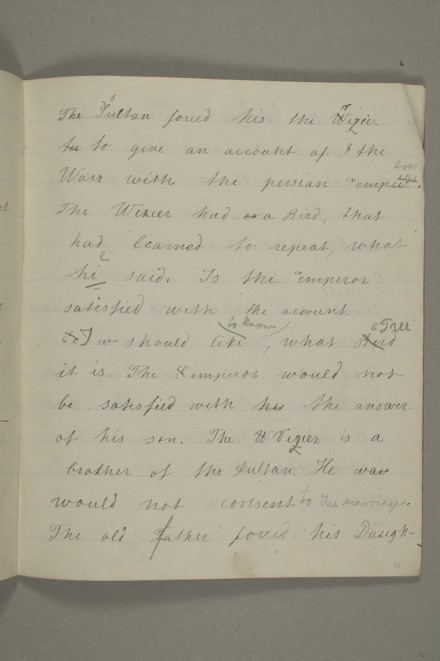 The Sultan forced his the Vizie-
to give an account of the
Wars with the persian emperor.
The Wexier had a Bird, that
had learned to repeat, what
he said. Is the emperor
satisfied with the account
I should like to know, what a Tree
it is. The emperor would not
be satisfied with the answer
of his son. The Vizier is a
brother of the Sultan. He was
would not consent to the marriage.
The old father forced his Daugh-